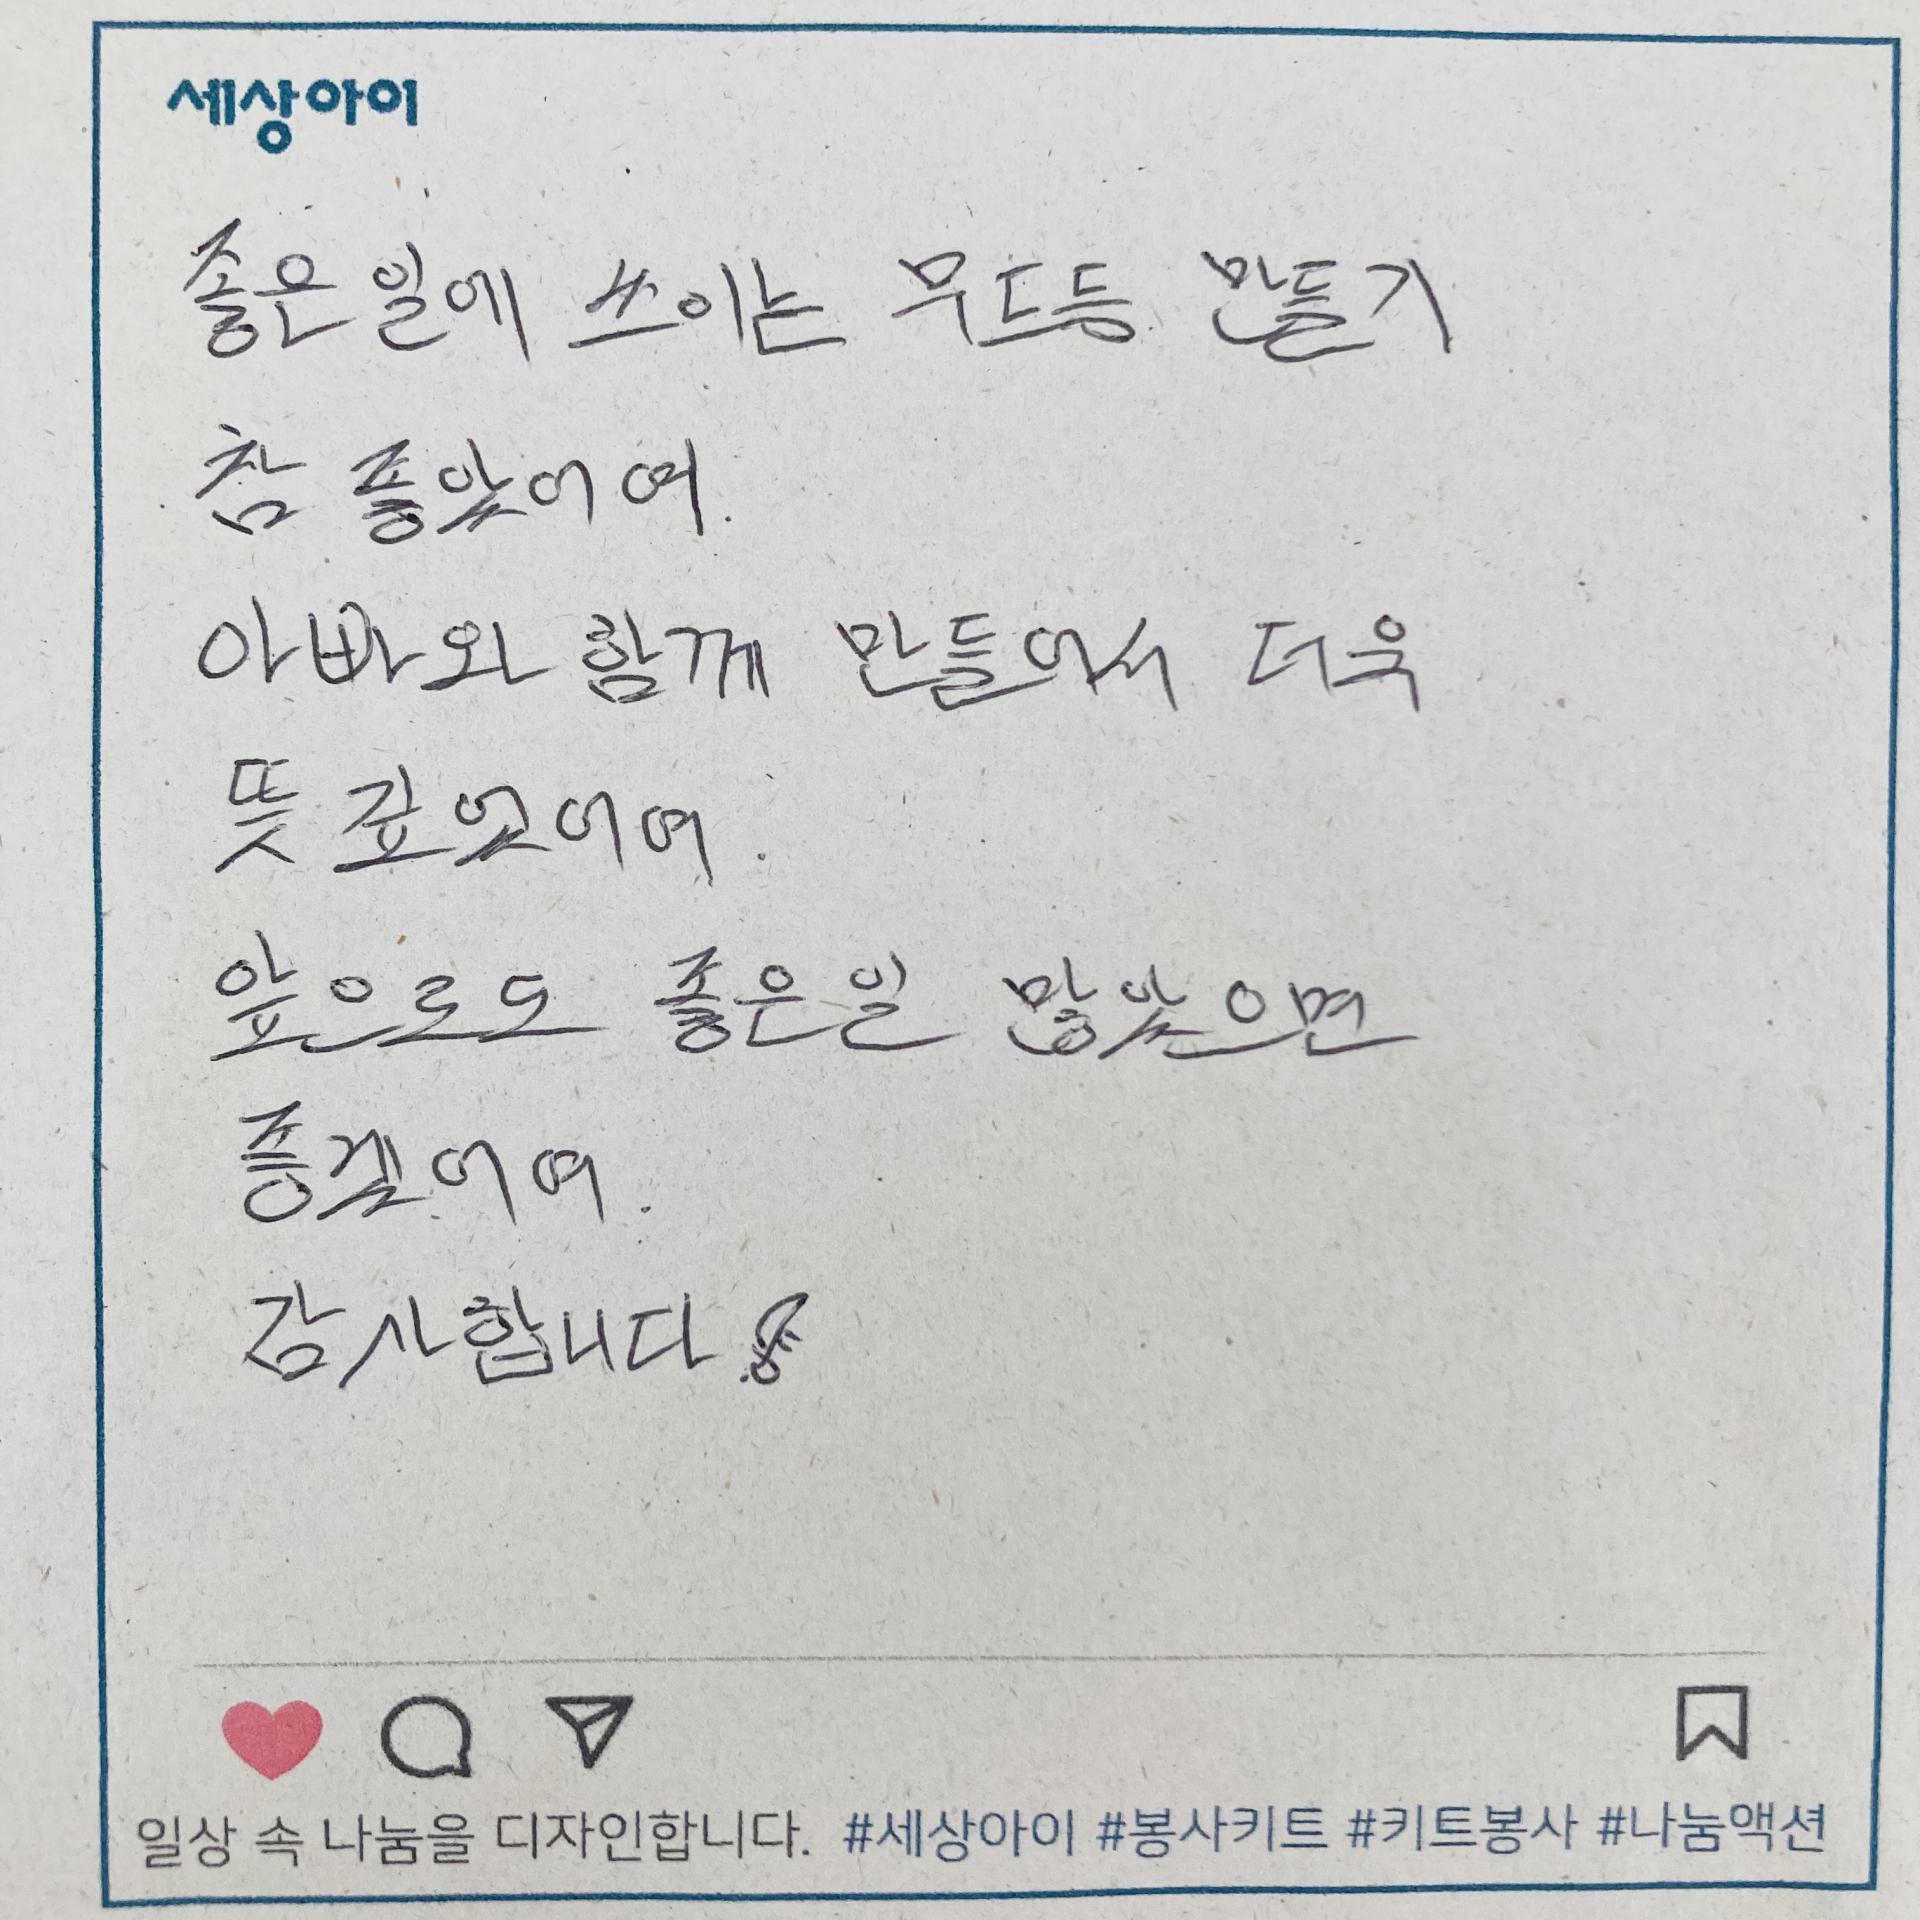 세상아이
좋은 일에 쓰이는 무드등 만들기
참 좋았어여.
아빠와 함께 만들어서 더욱
뜻 깊었어여.
앞으로도 좋은일 많았으면
좋겠어여.
감사합니다!
일상 속 나눔을 디자인합니다. #세상아이 #봉사키트 #키트봉사 #나눔액션